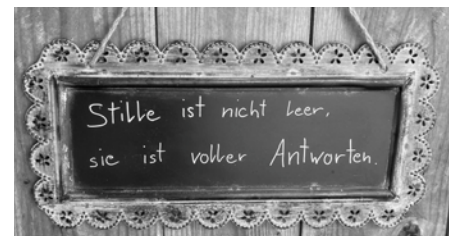 Stille ist nicht leer,
sie ist voller Antworten.